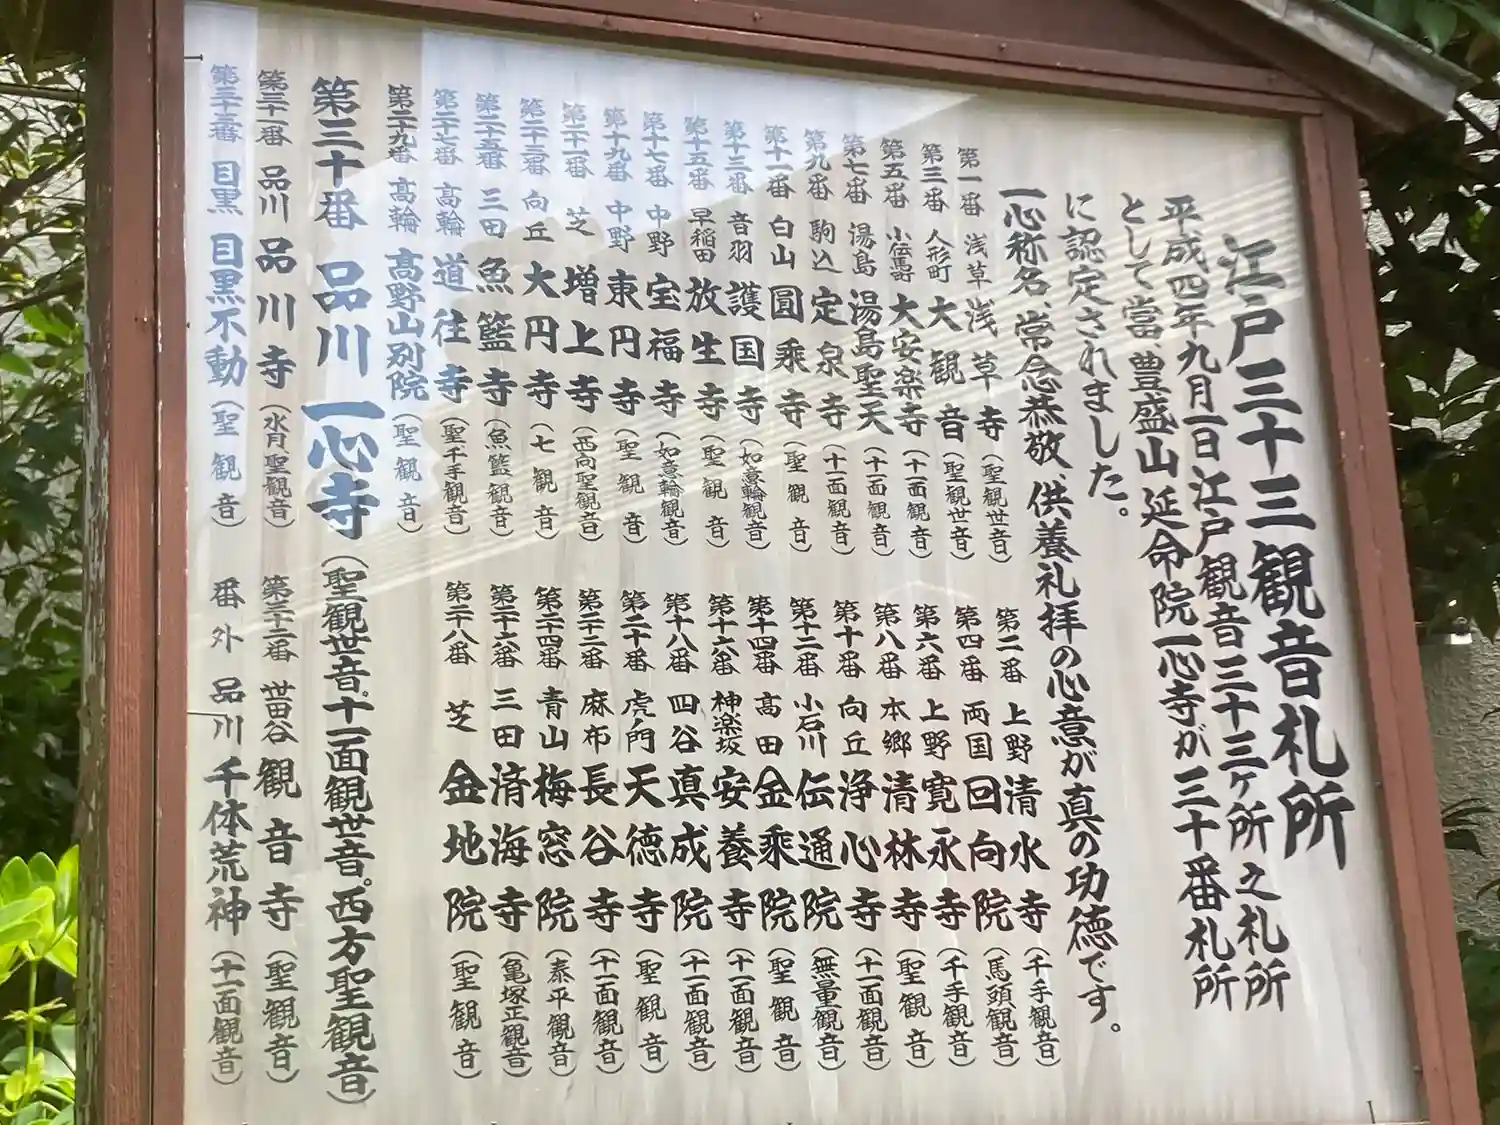 江戸三十三観音札所
平成四年九月一日江戸観音三十三ヶ所之札所
として當、豊盛山延命院一心寺が三十番札所
に認定されました。
一心称名、常念恭敬、供養礼拝の心意が真の功徳です。
第一番 浅草 浅草寺(聖観世音)
第二番 上野 清水寺(千手観音)
第三番 人形町 大観音(聖観世音)
第四番 両国 回向院(馬頭観音)
第五番 小伝馬町 大安楽寺(十一面観音)
第六番 上野 寛永寺(千手観音)
第七番 湯島 湯島聖天(十一面観音)
第八番 本郷 清林寺(聖観音)
第九番 駒込 定泉寺(十一面観音)
第十番 向丘 浄心寺(十一面観音)
第十一番 白山 圓乗寺(聖観音)
第十二番 小石川 伝通院(無量観音)
第十三番 音羽 護国寺(如意輪観音)
第十四番 高田 金乗院(聖観音)
第十五番 早稲田 放生寺(聖観音)
第十六番 神楽坂 安養寺(十一面観音)
第十七番 中野 宝福寺(如意輪観音)
第十八番 四谷 真成院(十一面観音)
第十九番 中野 東円寺(聖観音)
第二十番 虎ノ門 天徳寺(聖観音)
第二十一番 芝 増上寺(西向聖観音)
第二十二番 麻布 長谷寺(十一面観音)
第二十三番 向丘 大円寺(七観音)
第二十四番 青山 梅窓院(泰平観音)
第二十五番 三田 魚籃寺(魚籃観音)
第二十六番 三田 済海寺(亀塚正観音)
第二十七番 高輪 道往寺(聖千手観音)
第二十八番 芝 金地院(聖観音)
第二十九番 高輪 高野山別院(聖観音)
第三十番 品川 一心寺(聖観世音。十一面観世音。西方聖観音)
第三十一番 品川 品川寺(水月聖観音)
第三十二番 世田谷 観音寺(聖観音)
第三十三番 目黒 目黒不動(聖観音)
番外 品川 千体荒神(十一面観音)